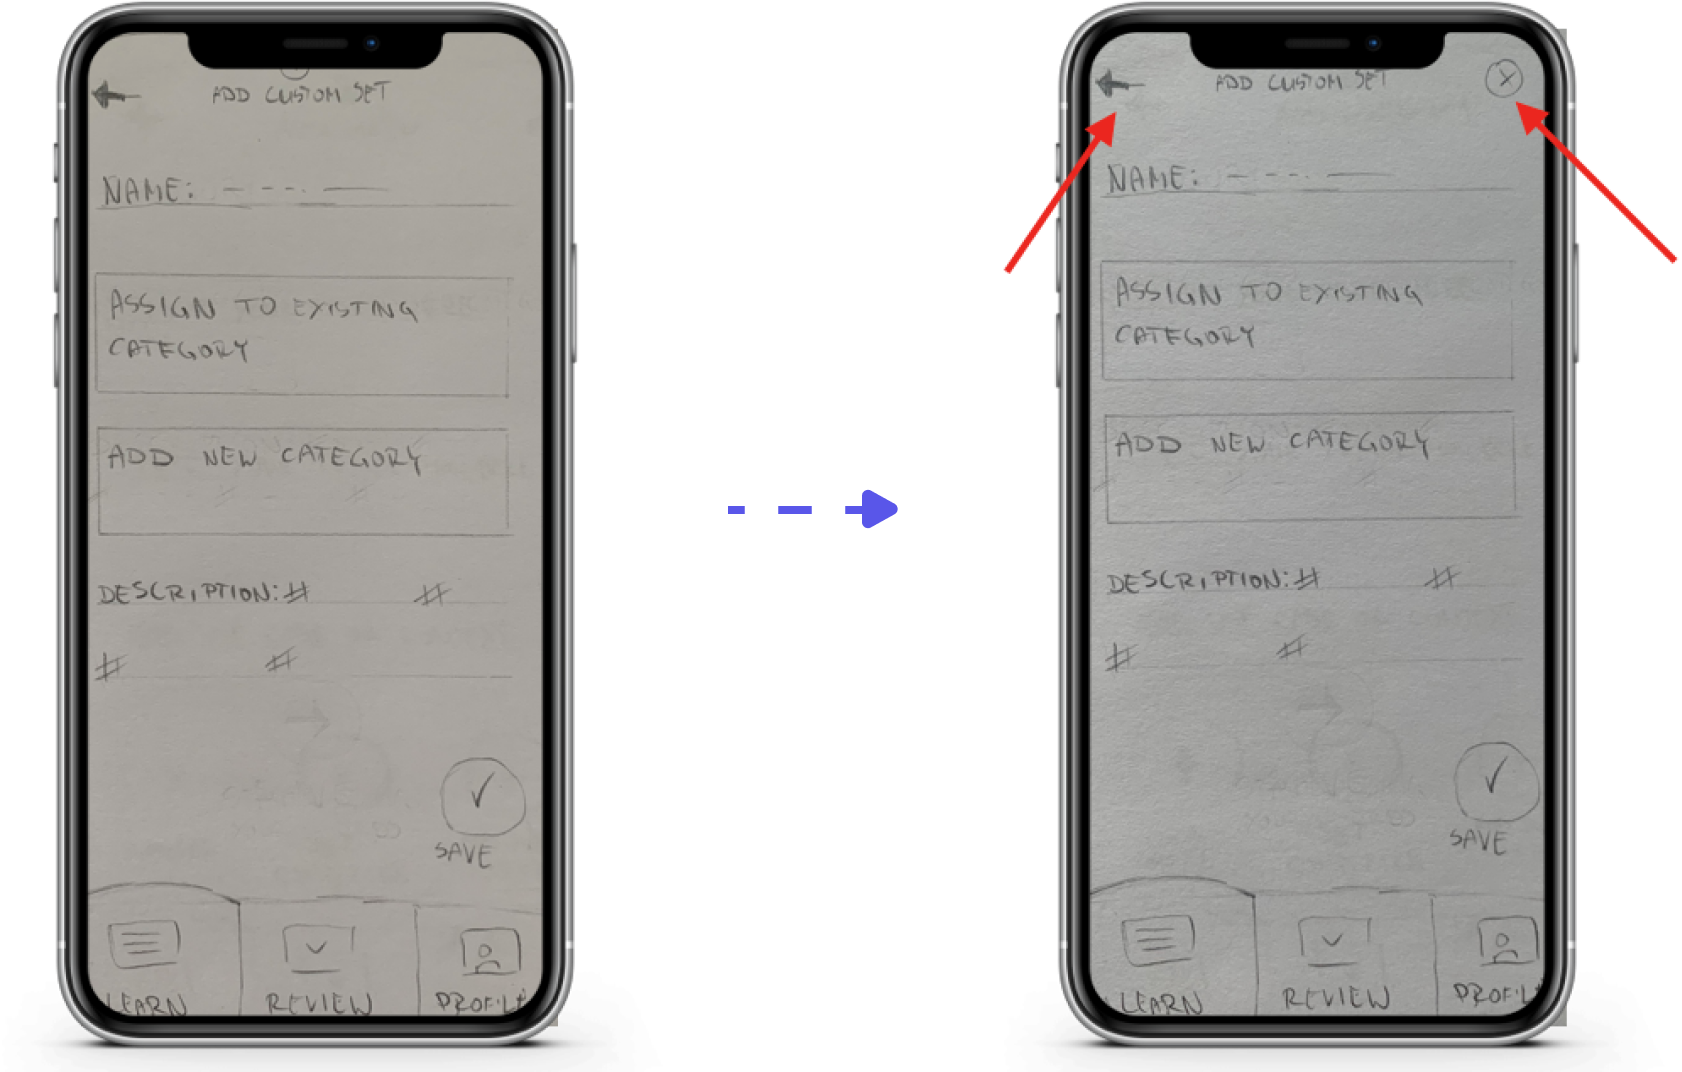 ADD CUSTOM SET
NAME:
ASSIGN TO EXISTING
CATEGORY
ADD NEW CATEGORY
DESCRIPTION:# #
# #
✓
SAVE
LEARN REVIEW PROFIL
ADD CUSTOM SET X
NAME:
ASSIGN TO EXISTING
CATEGORY
ADD NEW CATEGORY
DESCRIPTION:# #
# #
✓
SAVE
LEARN REVIEW PROFIL